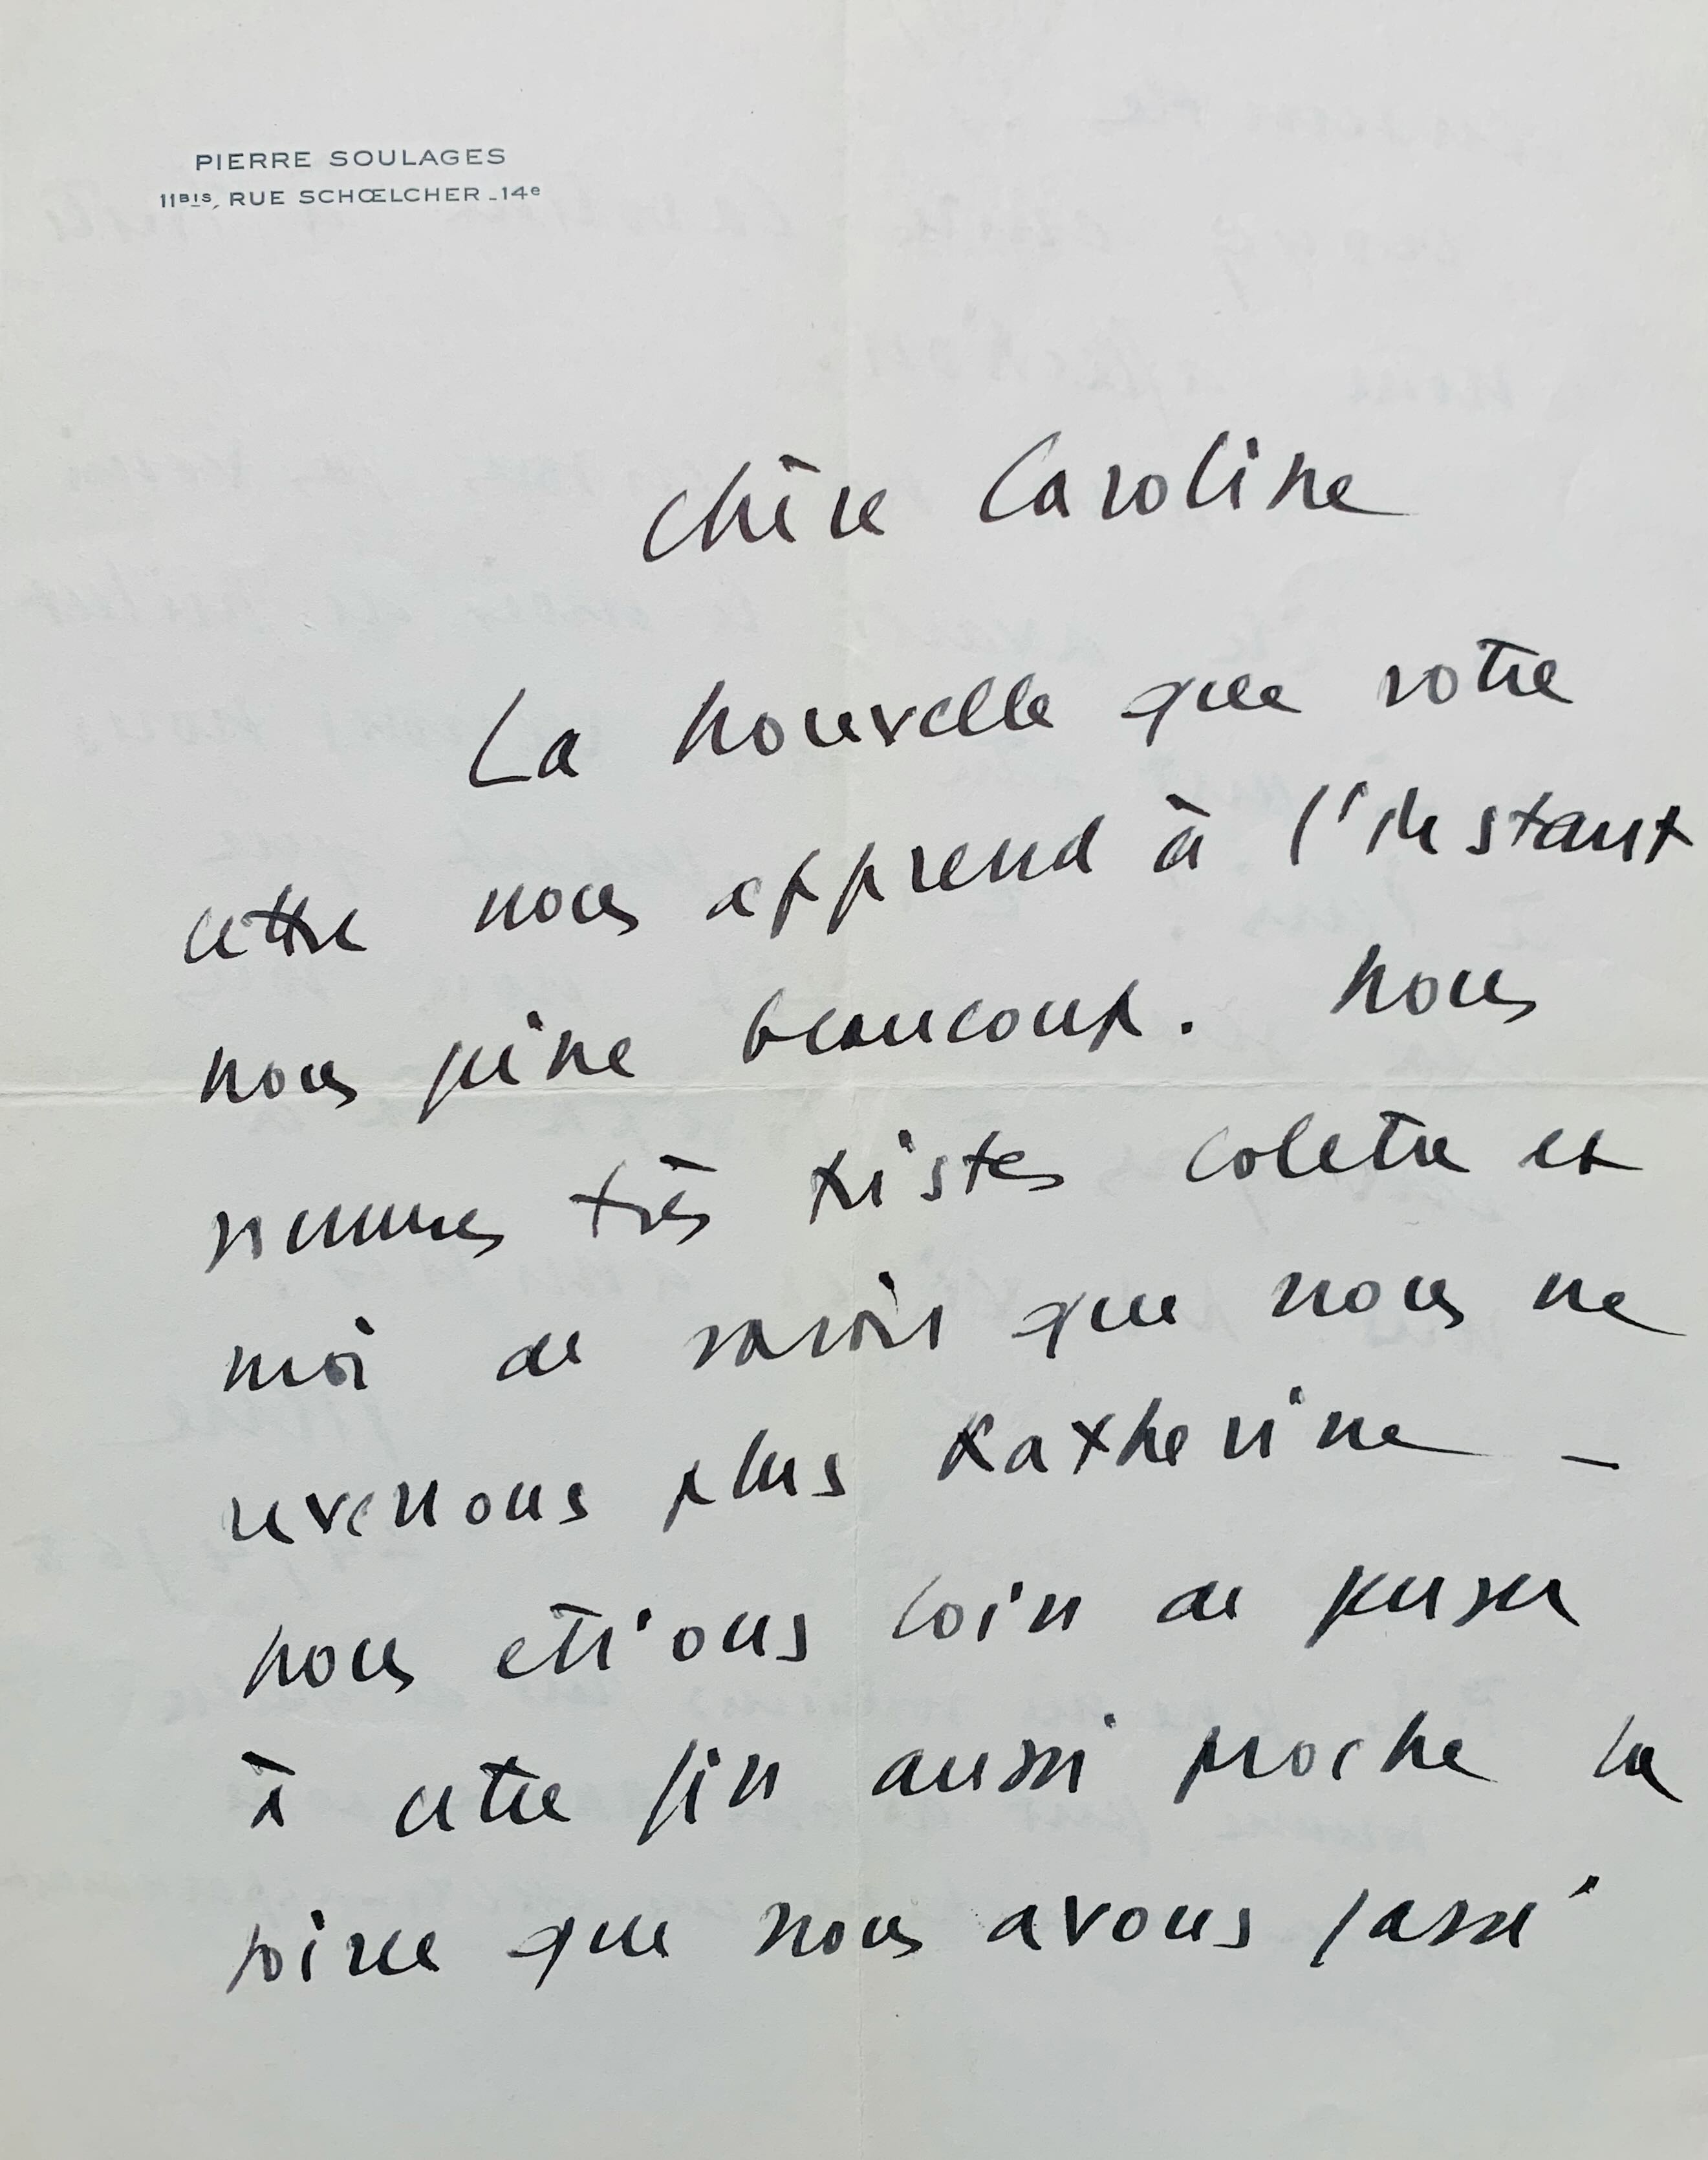 PIERRE SOULAGES
11BIS, RUE SCHŒLCHER _ 14e
Chère Caroline
La nouvelle que votre
lettre nous apprend à l'instant
nous peine beaucoup. Nous
sommes très tristes Colette et
moi de savoir que nous ne
reverrons plus Katherine _
nous étions loin de penser
à cette fin aussi proche la
soirée que nous avons passé